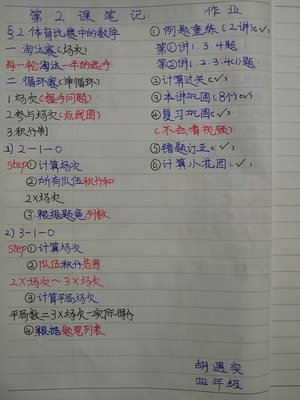 第2课笔记
§2 体育比赛中的数学
一 淘汰赛(场次)
每一轮淘汰一半的选手
二 循环赛(单循环)
1.场次(握手问题)
2.参与场次(点线图)
3.积分制
1) 2-1-0
step①计算场次
②所有队伍积分和
2×场次
③根据题意列数
2) 3-1-0
step①计算场次
②队伍积分范围
2×场次~3×场次
③计算平局场次
平局数=3×场次-实际得分
④根据题意列表
作业
①例题重练(2讲)(✓)
第①讲1.3.4题
第②讲1.2.3.4(1)题
②计算过关(✓)
③本讲巩固(8个)(✓)
④复习巩固(✓)
(不会看视频)
⑤错题订正(✓)
⑥计算小花园(✓)
胡遇实
四年级